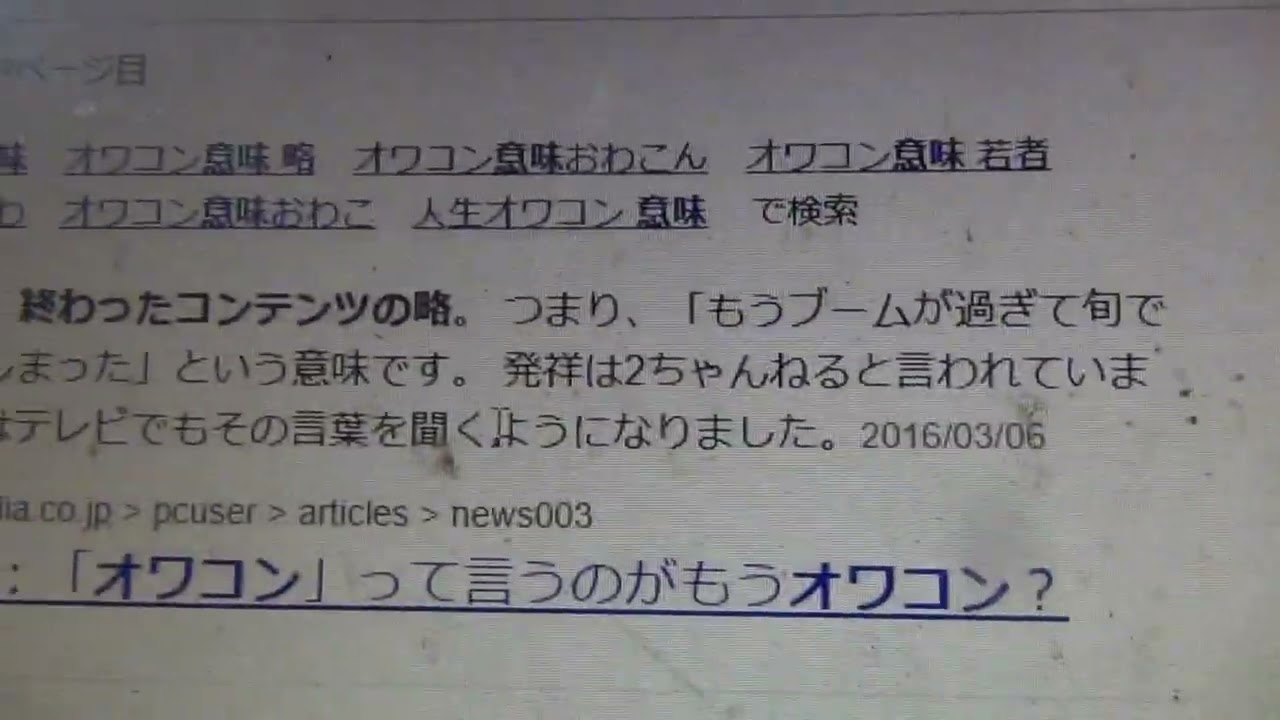 ページ目
味 オワコン意味 略 オワコン意味おわこん オワコン意味 若者
わ オワコン意味おわこ 人生オワコン 意味 で検索
終わったコンテンツの略。 つまり、「もうブームが過ぎて旬で
しまった」という意味です。 発祥は2ちゃんねると言われていま
はテレビでもその言葉を聞くようになりました。2016/03/06
dia.co.jp > pcuser > articles > news003
:「オワコン」って言うのがもうオワコン？